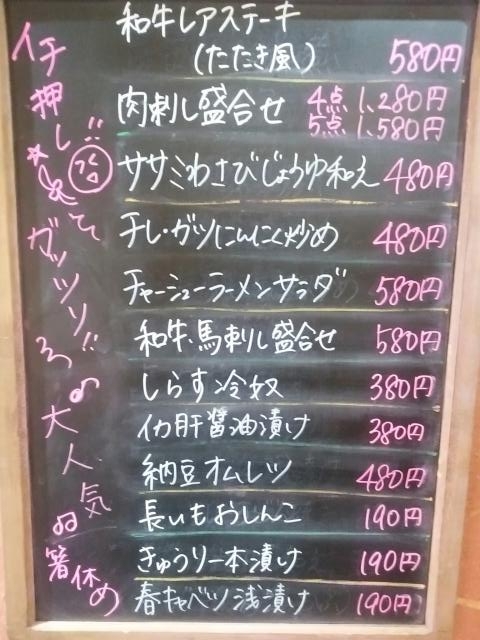 和牛レアステーキ
(たたき風) 580円
肉刺し盛合せ 4点 1,280円
5点 1,580円
ササミわさびじょうゆ和え 480円
チレ・ガツにんにく炒め 480円
チャーシューラーメンサラダ 580円
和牛、馬刺し盛合せ 580円
しらす冷奴 380円
イカ肝醤油漬け 380円
納豆オムレツ 480円
長いもおしんこ 190円
きゅうり一本漬け 190円
春キャベツ浅漬け 190円
イチ押し!!
ガッツリ!!
大人気
箸休め